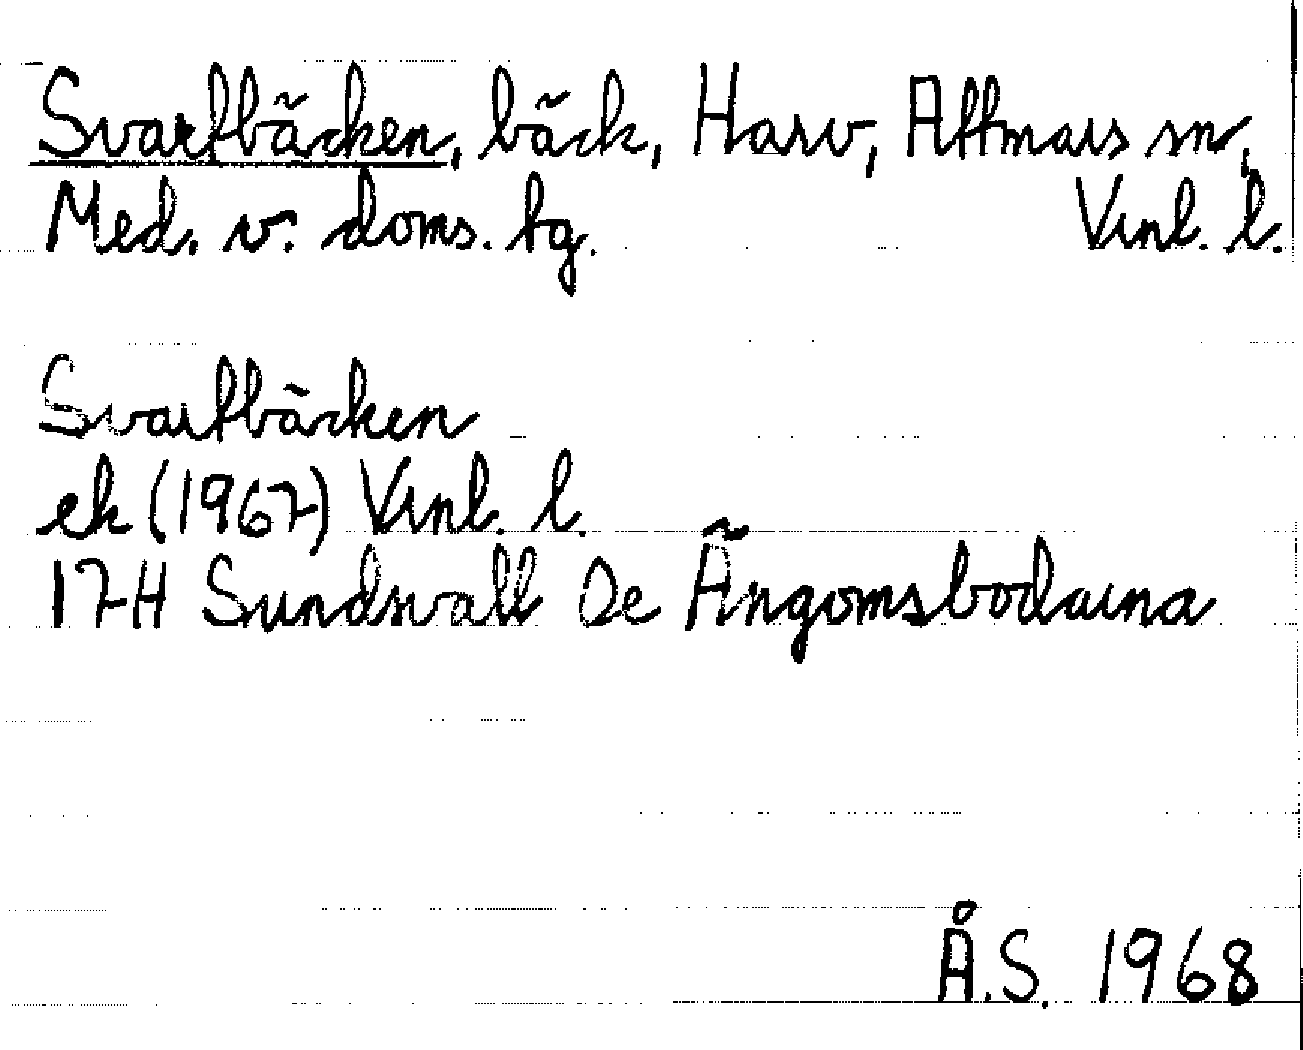 Svartbäcken, bäck, Harv, Attmars sn,
Med. v. doms. tg. Vrnl. l.
Svartbäcken
ek (1967) Vrnl. l.
17H Sundsvall Se Ängomsbodarna
Å.S. 1968